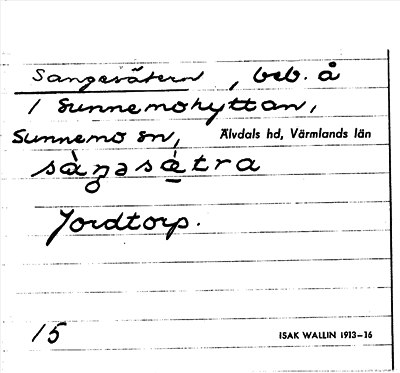 Sangesätern, beb. å
1 Sunnemohyttan,
Sunnemo sn, Älvdals hd, Värmlands län
sàŋəsætra
Jordtorp.
15 ISAK WALLIN 1913–16